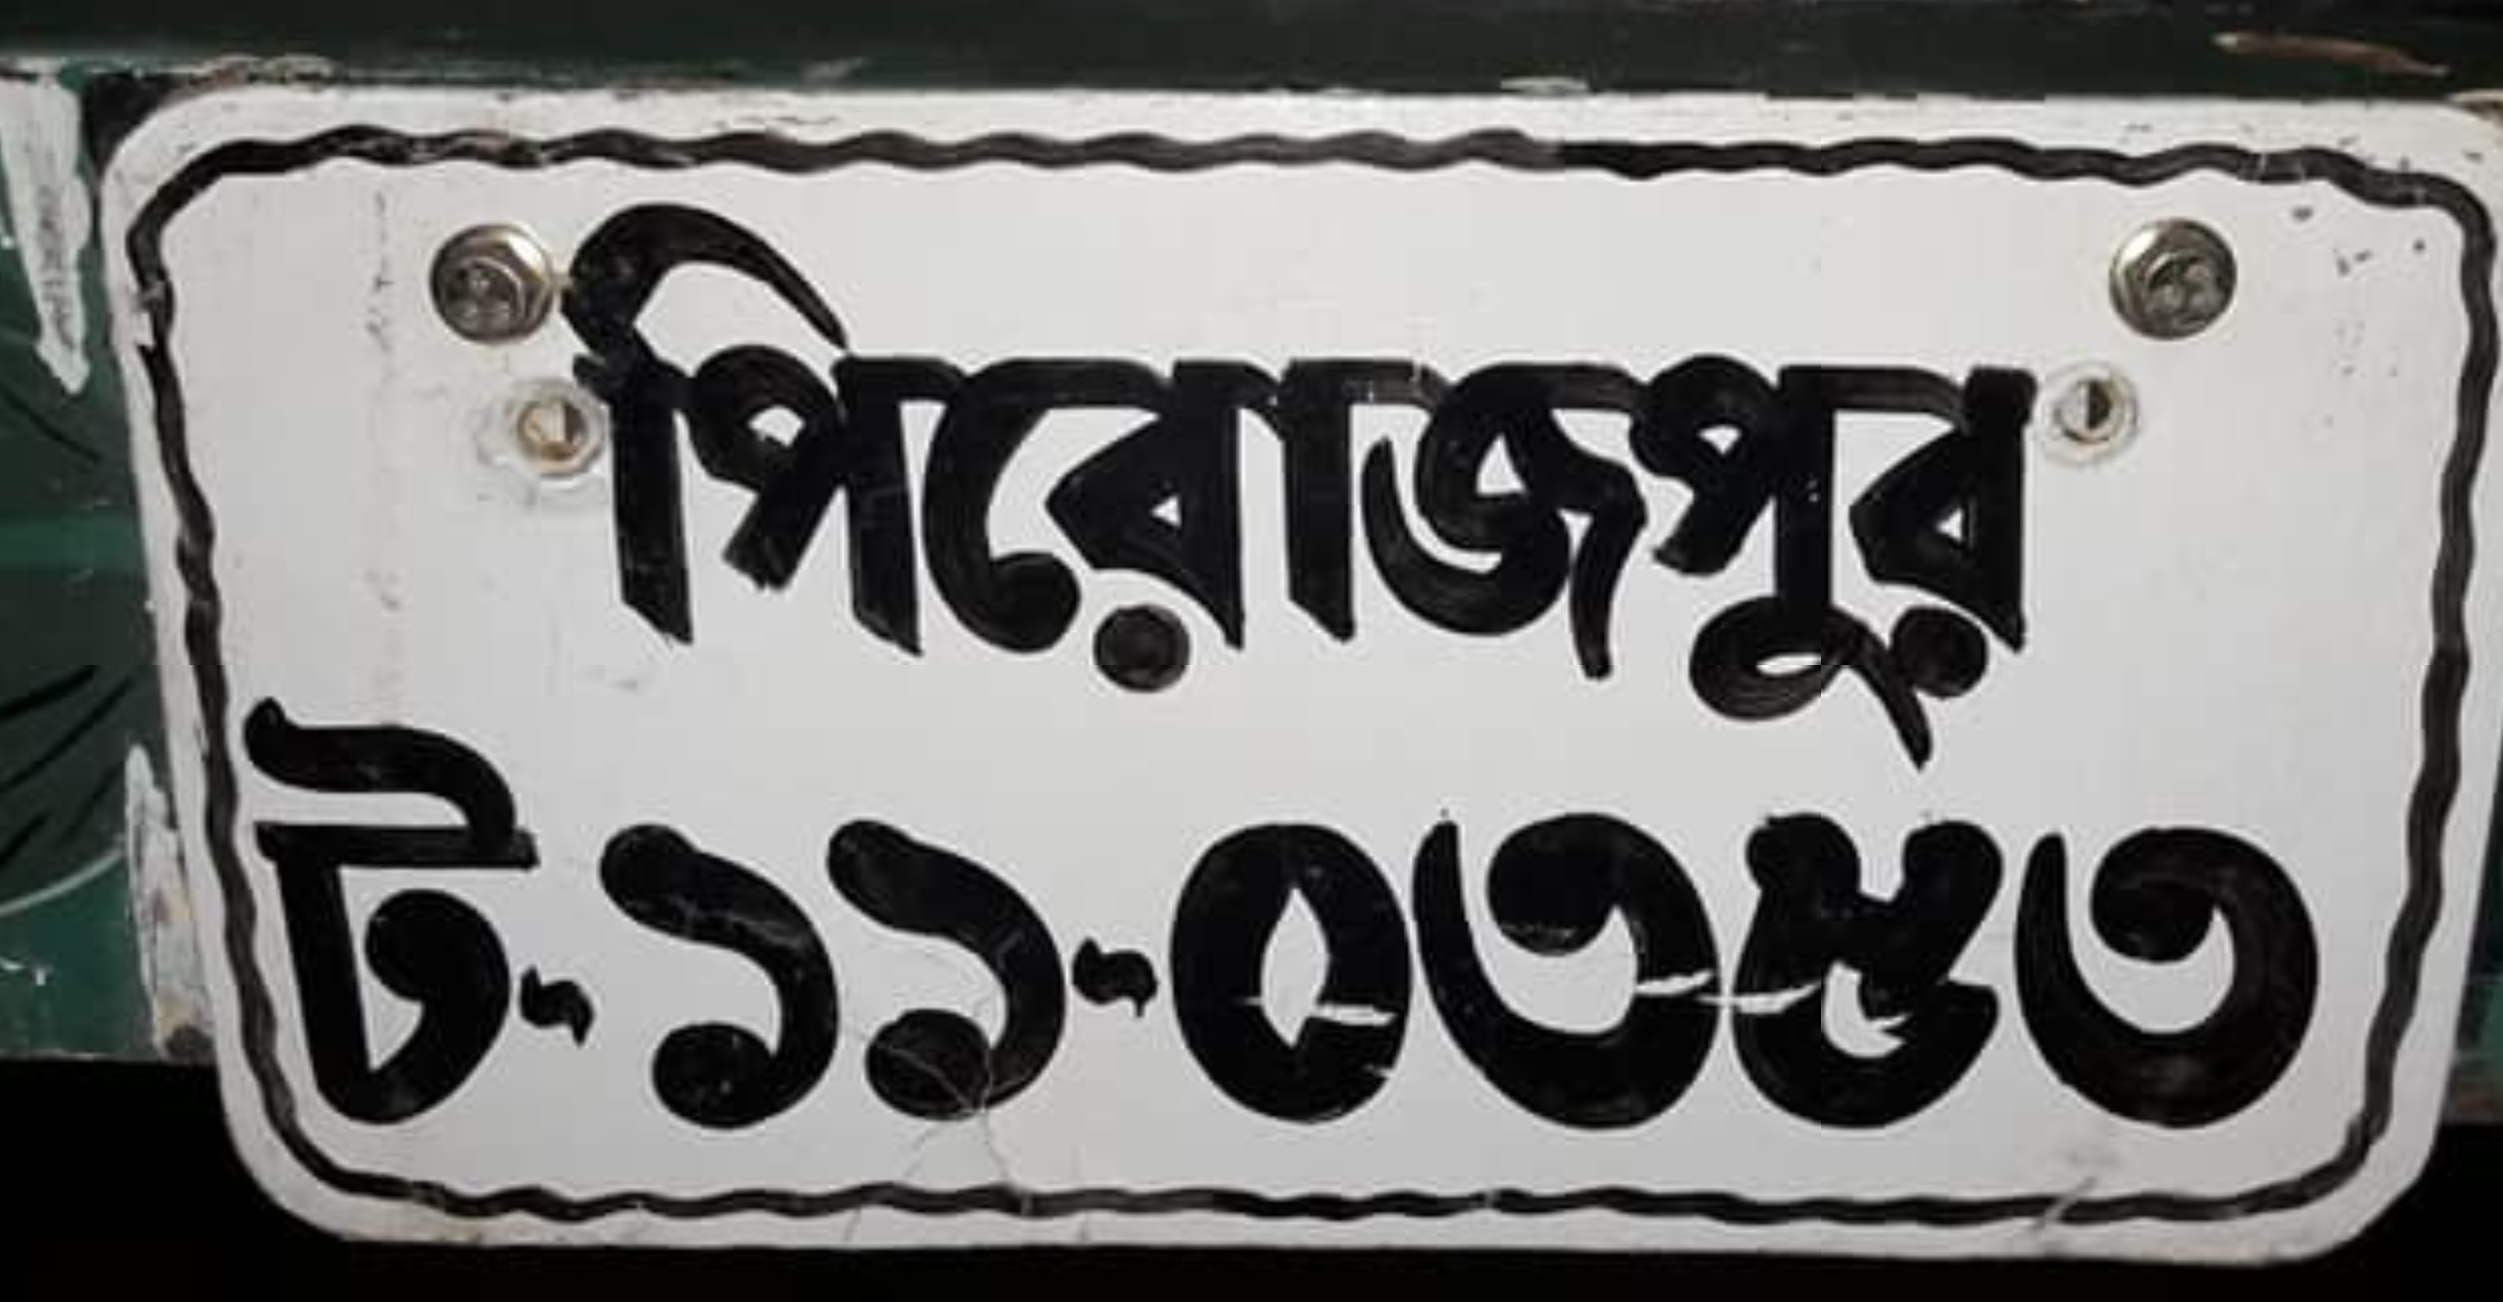 পিরোজপুর
ট-১১-০৩৪৩